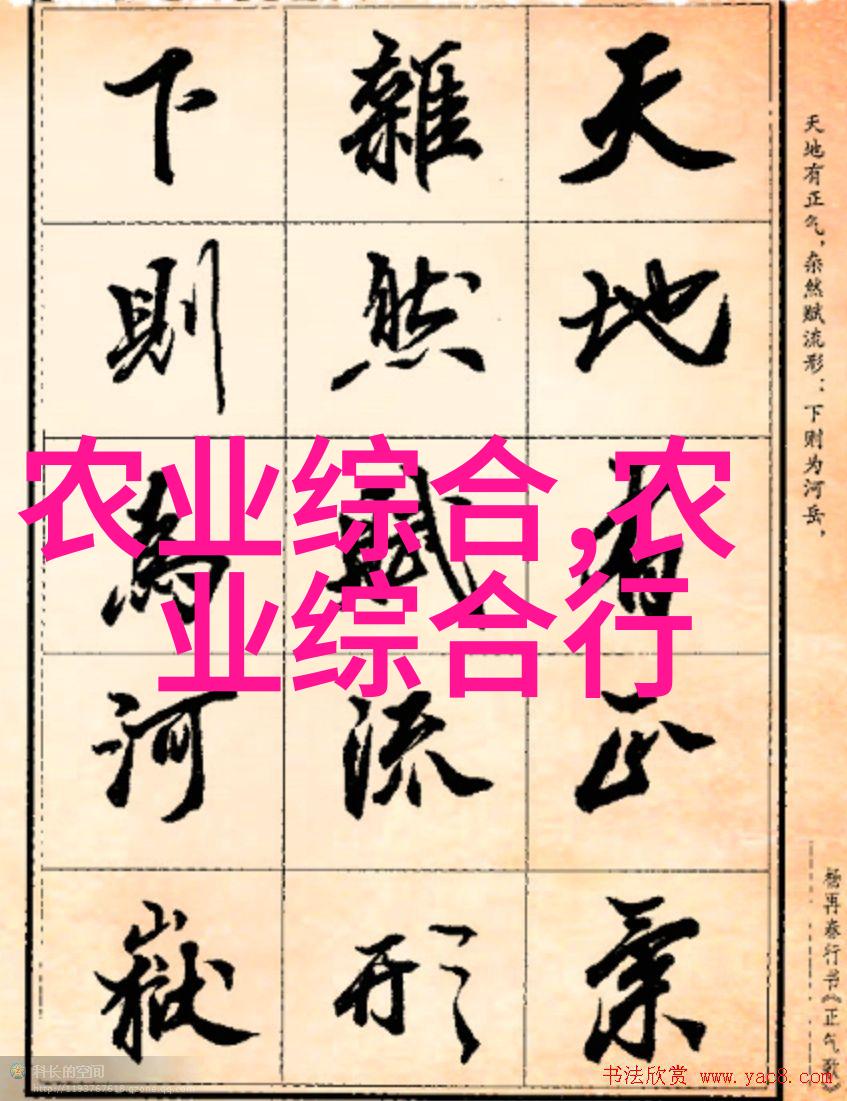 天地有正氣
雜然賦流形
下則為河嶽
天地有正气，杂然赋流形：下则为河岳，
杨再春行书《正气歌》
农业综合,农
业综合行
科长的空间
http://1193767618.qzone.qq.com
书法欣赏 www.yac8.com